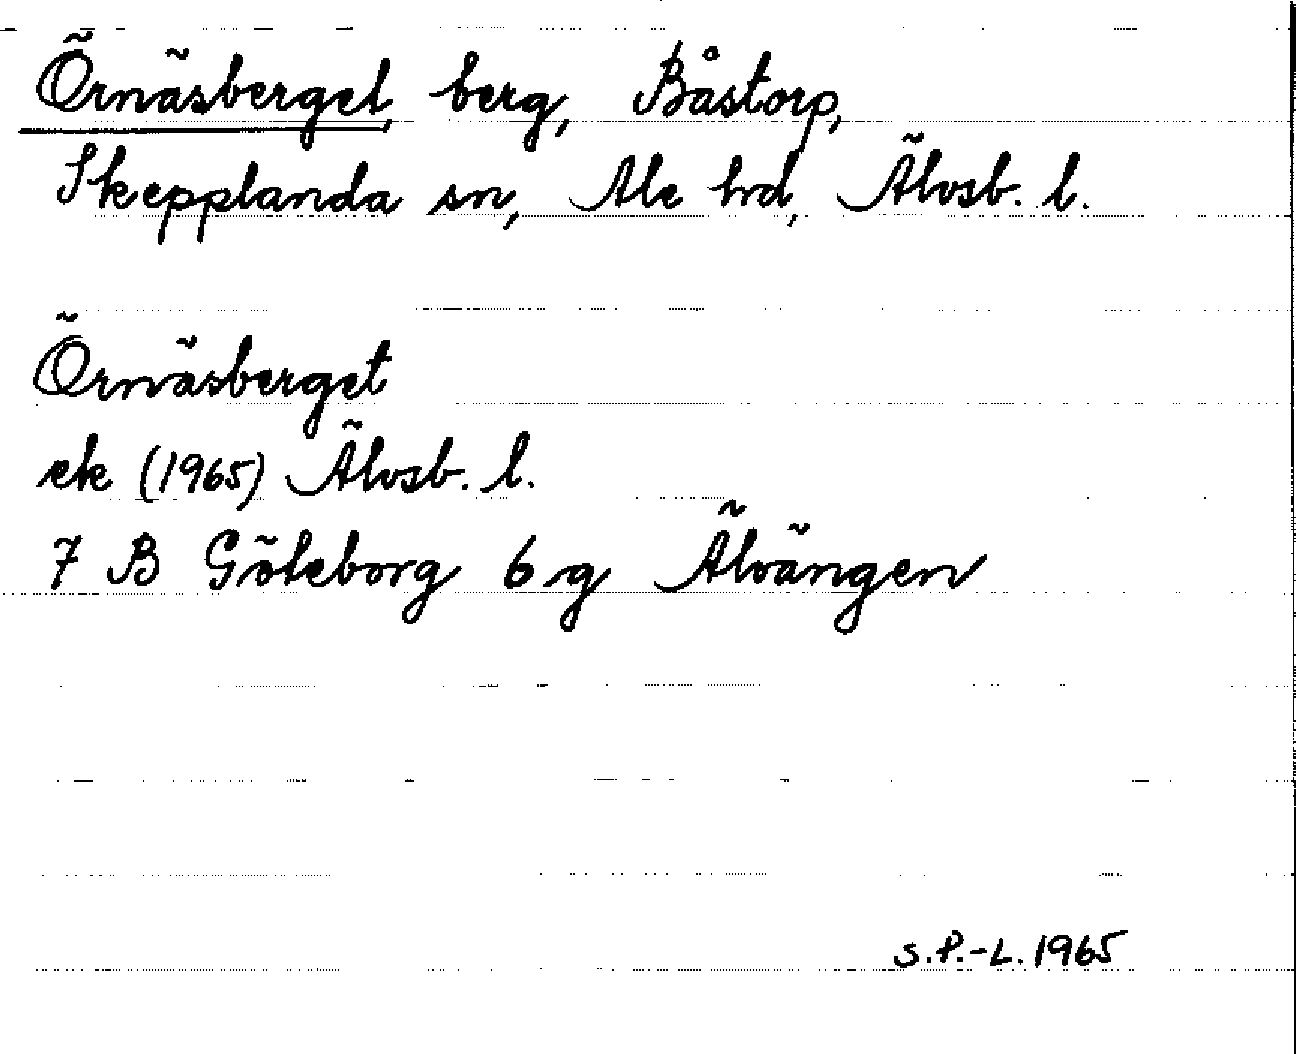 Örnäsberget, berg, Båstorp,
Skepplanda sn, Ale hd, Älvsb. l.
Örnäsberget
ek (1965) Älvsb. l.
7 B Göteborg 6 g Älvängen
S.P.-L. 1965